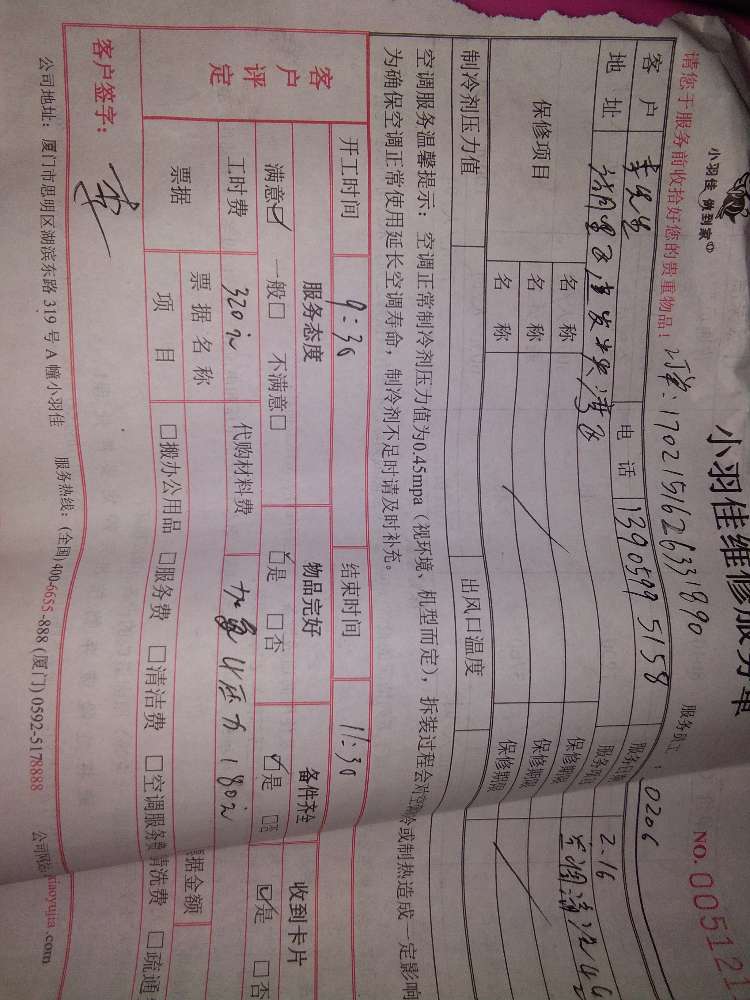 小羽佳 做到家
小羽佳维修服务单
NO. 005121
请您于服务前收拾好您的贵重物品！
订单：1702151626331890
服务员工：0206
客户 李先生 电话 13905995158
地址
2-16
保修项目 名称 保修期限
名称 保修期限
名称 保修期限
制冷剂压力值 出风口温度
空调服务温馨提示：空调正常制冷剂压力值为0.45mpa（视环境、机型而定），拆装过程会对空调制冷或制热造成一定影响
为确保空调正常使用延长空调寿命，制冷剂不足时请及时补充。
开工时间 9：30 结束时间 11：30
客户评定 服务态度 物品完好 备件齐全 收到卡片
满意☑ 一般□ 不满意□ ☑是 □否 ☑是 □否 ☑是 □否
工时费 320元 代购材料费 180元
票据 票据名称 票据金额
项目 □搬办公用品 □服务费 □清洁费 □空调服务费 清洗费 □疏通
客户签字：
公司地址：厦门市思明区湖滨东路 319 号 A 幢小羽佳 服务热线：(全国)400-6655-888 (厦门) 0592-5178888 公司网站 xiaoyujia.com